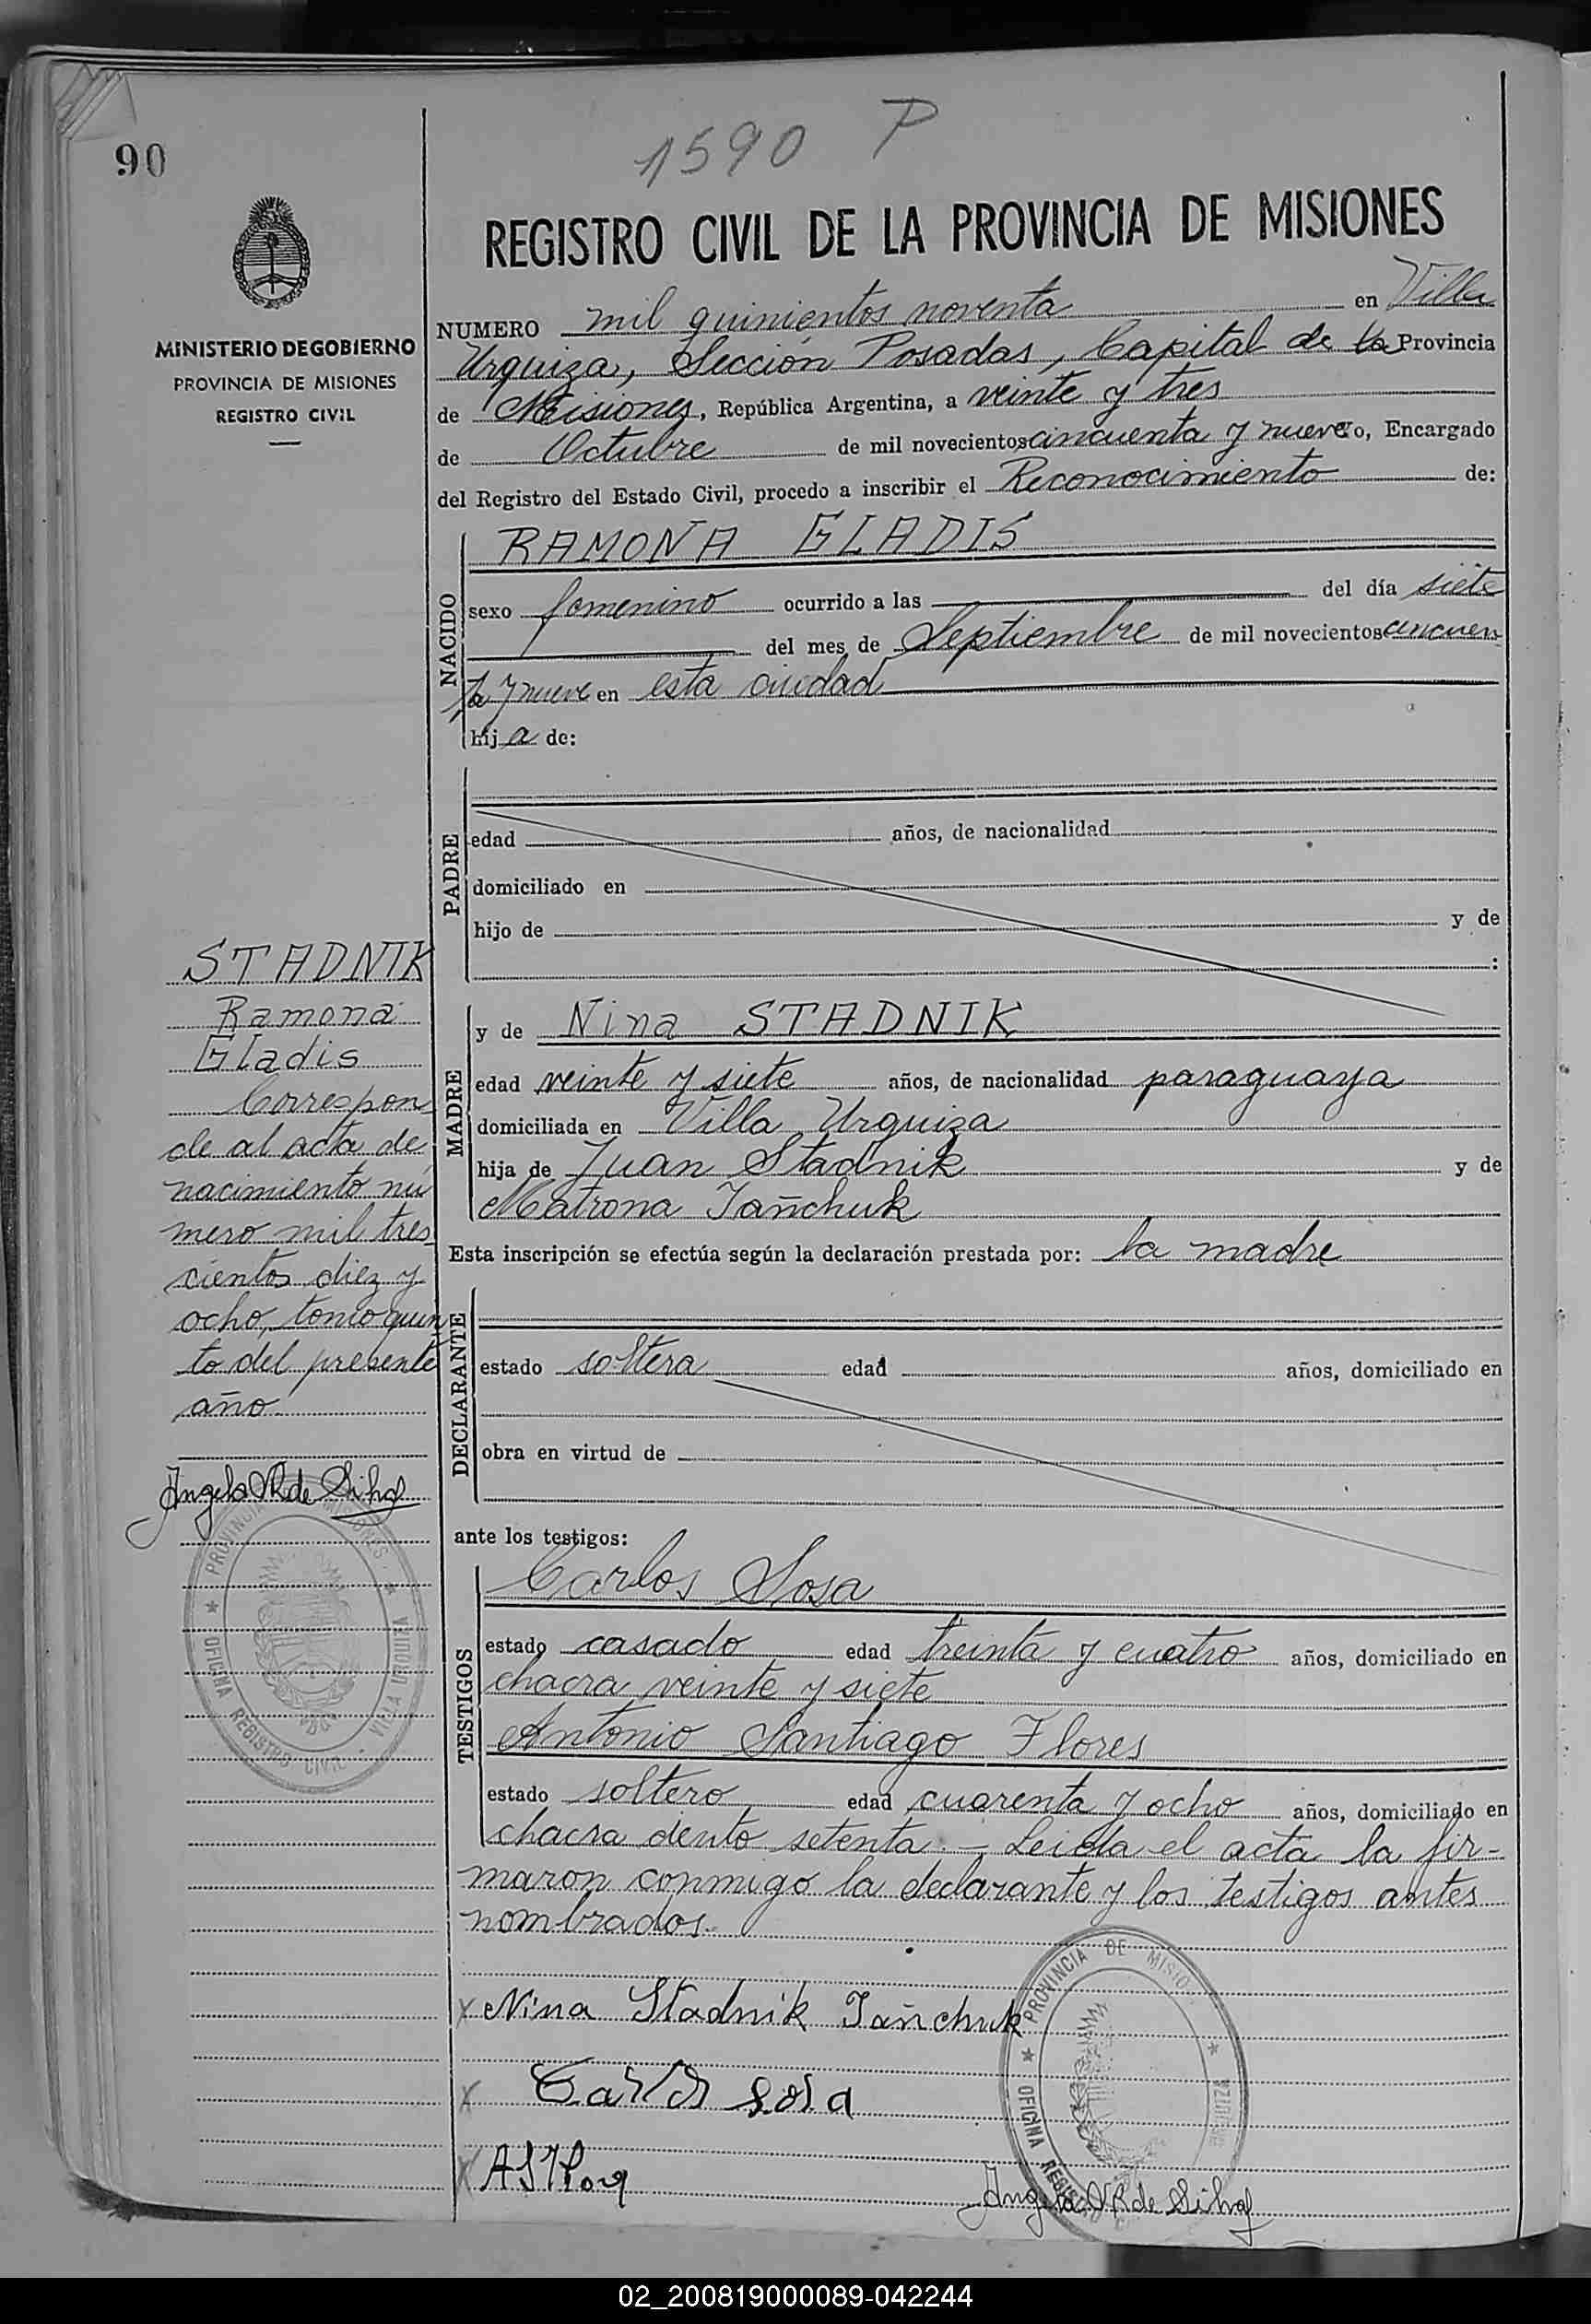 90
1590 P
REGISTRO CIVIL DE LA PROVINCIA DE MISIONES
MINISTERIO DE GOBIERNO
PROVINCIA DE MISIONES
REGISTRO CIVIL
NUMERO mil quinientos noventa en Villa
Urquiza, Sección Posadas, Capital de la Provincia
de Misiones, República Argentina, a veinte y tres
de Octubre de mil novecientos cincuenta y nueve yo, Encargado
del Registro del Estado Civil, procedo a inscribir el Reconocimiento de:
NACIDO
RAMONA GLADIS
sexo femenino ocurrido a las del día siete
del mes de Septiembre de mil novecientos cincuen
ta y nueve en esta ciudad
hija de:
PADRE
edad años, de nacionalidad
domiciliado en
hijo de y de
:
MADRE
y de Nina STADNIK
edad veinte y siete años, de nacionalidad paraguaya
domiciliada en Villa Urquiza
hija de Juan Stadnik y de
Matrona Iañchuk
Esta inscripción se efectúa según la declaración prestada por: la madre
DECLARANTE
estado soltera edad años, domiciliado en
obra en virtud de
ante los testigos:
TESTIGOS
Carlos Sosa
estado casado edad treinta y cuatro años, domiciliado en
chacra veinte y siete
Antonio Santiago Flores
estado soltero edad cuarenta y ocho años, domiciliado en
chacra ciento setenta.- Leida el acta la fir-
maron conmigo la declarante y los testigos antes
nombrados.
x Nina Stadnik Iañchuk
x Carlos Sosa
x
Angela R de Silva
PROVINCIA DE MISIONES
OFICINA REGISTRO CIVIL
URQUIZA
STADNIK
Ramona
Gladis
Correspon
de al acta de
nacimiento nú
mero mil tres
cientos diez y
ocho, tomo quin
to del presente
año
Angela R de Silva
PROVINCIA MISIONES
OFICINA REGISTRO CIVIL - VILLA URQUIZA
02_200819000089-042244